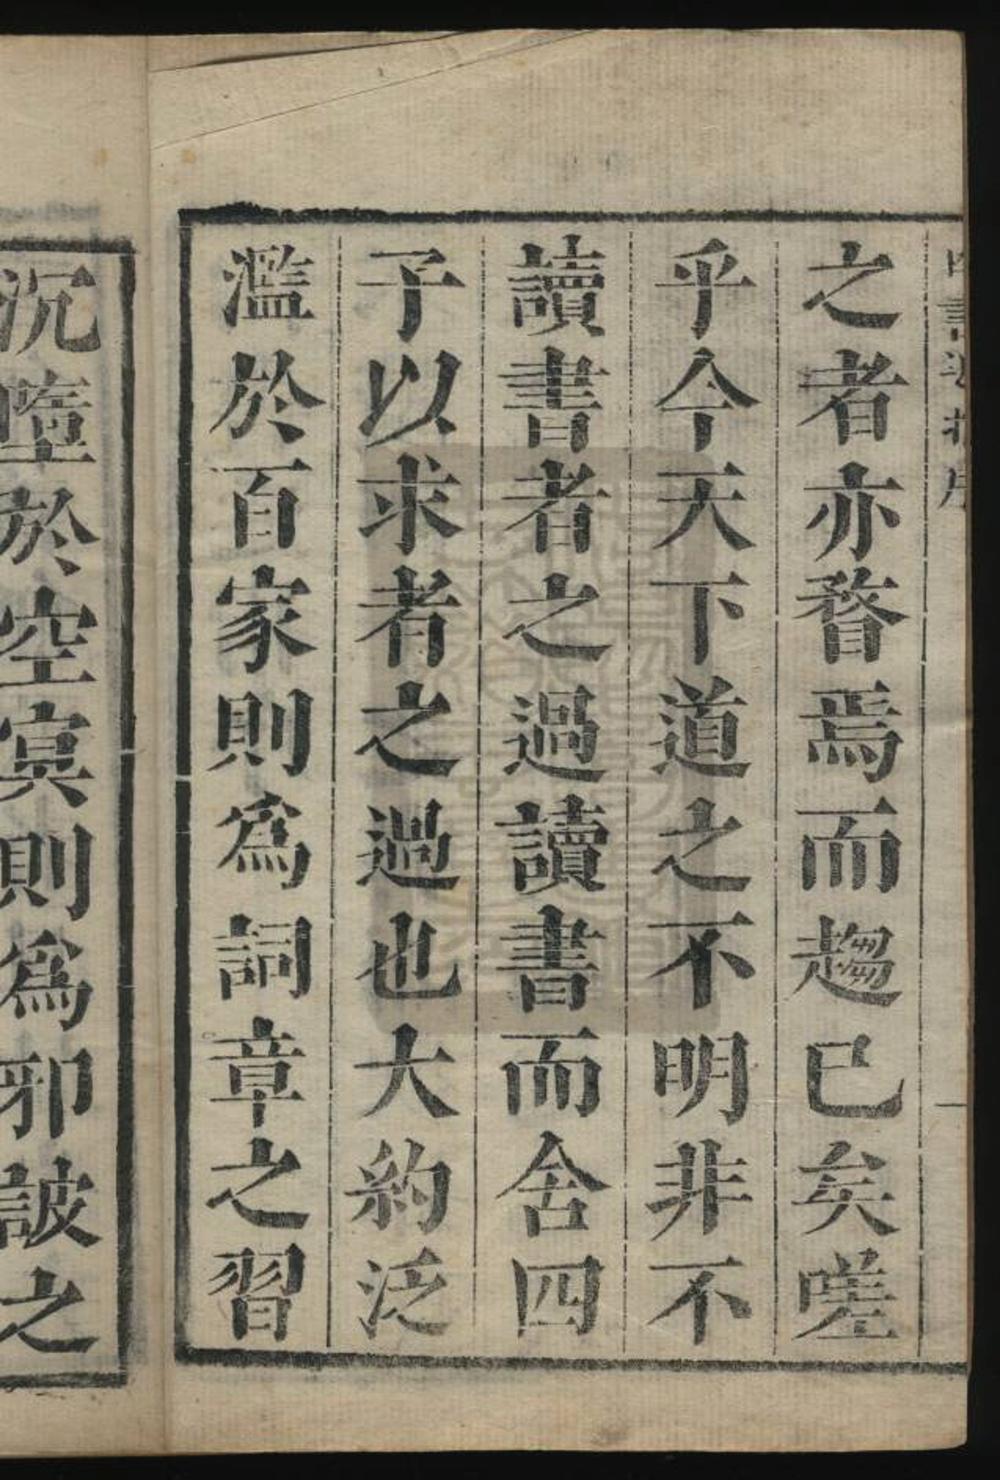 之者亦瞀焉而趨已矣嗟
乎今天下道之不明非不
讀書者之過讀書而舍四
子以求者之過也大約泛
濫於百家則爲詞章之習
沉墮於空寞則爲邪詖之